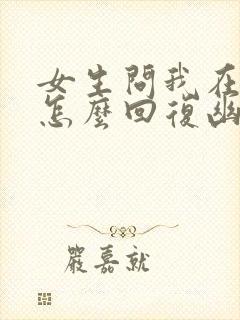 女生問我在
怎麼回復幽
嚴嘉就